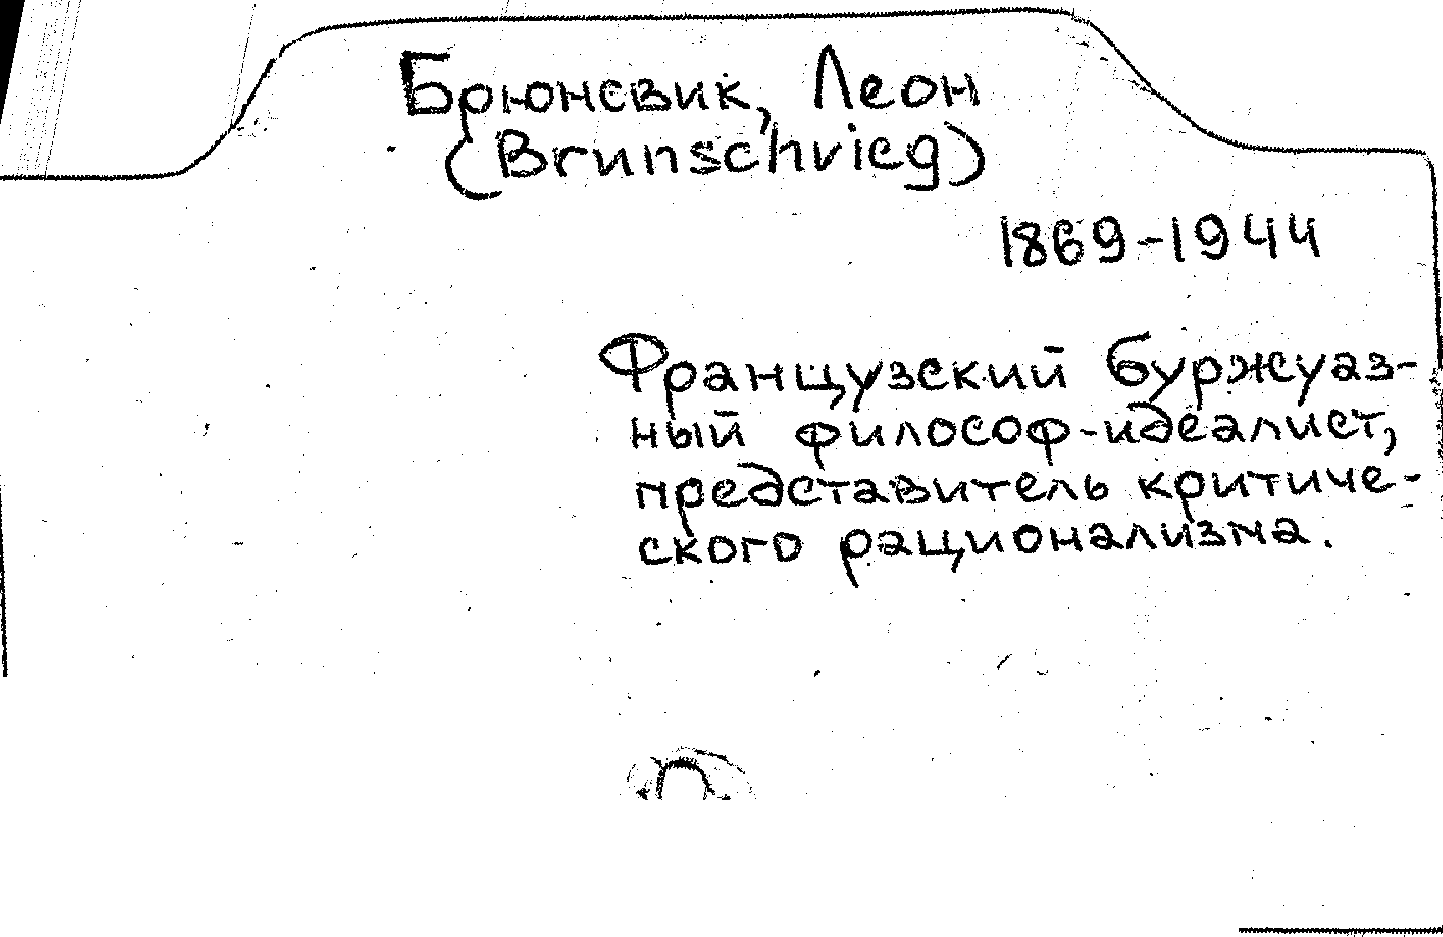 Брюнсвик, Леон
(Brunschvieg)
1869-1944
Французский буржуаз-
ный философ-идеалист,
представитель критиче-
ского рационализма.